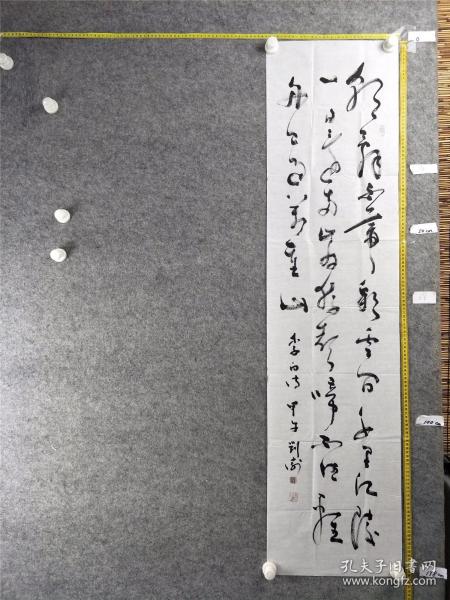 朝辞白帝彩云间千里江陵
一日还两岸猿声啼不住轻
舟已过万重山
李白诗 甲午 刘
0
50cm
100cm
孔夫子旧书网
www.kongfz.com